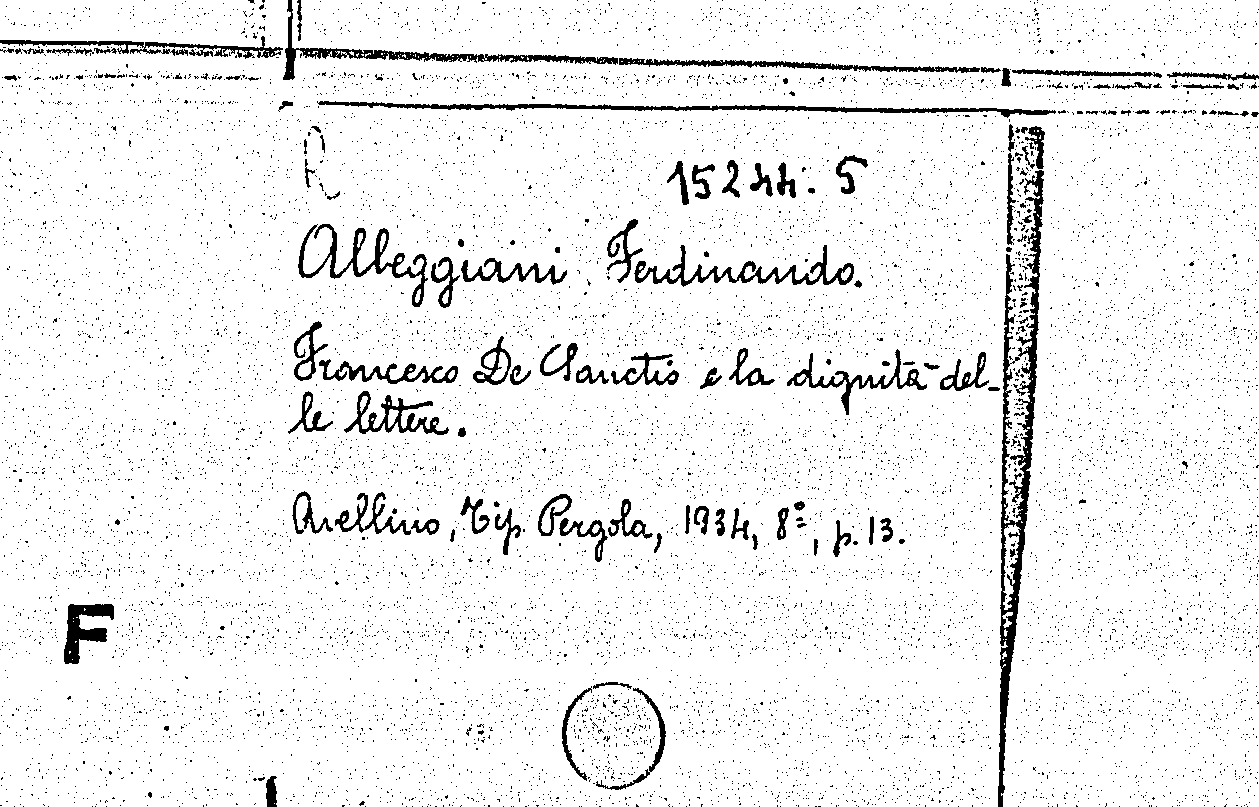 R
15244. 5
Albeggiani Ferdinando.
Francesco De Sanctis e la dignità del-
le lettere.
Avellino, Tip. Pergola, 1934, 8º, p. 13.
F